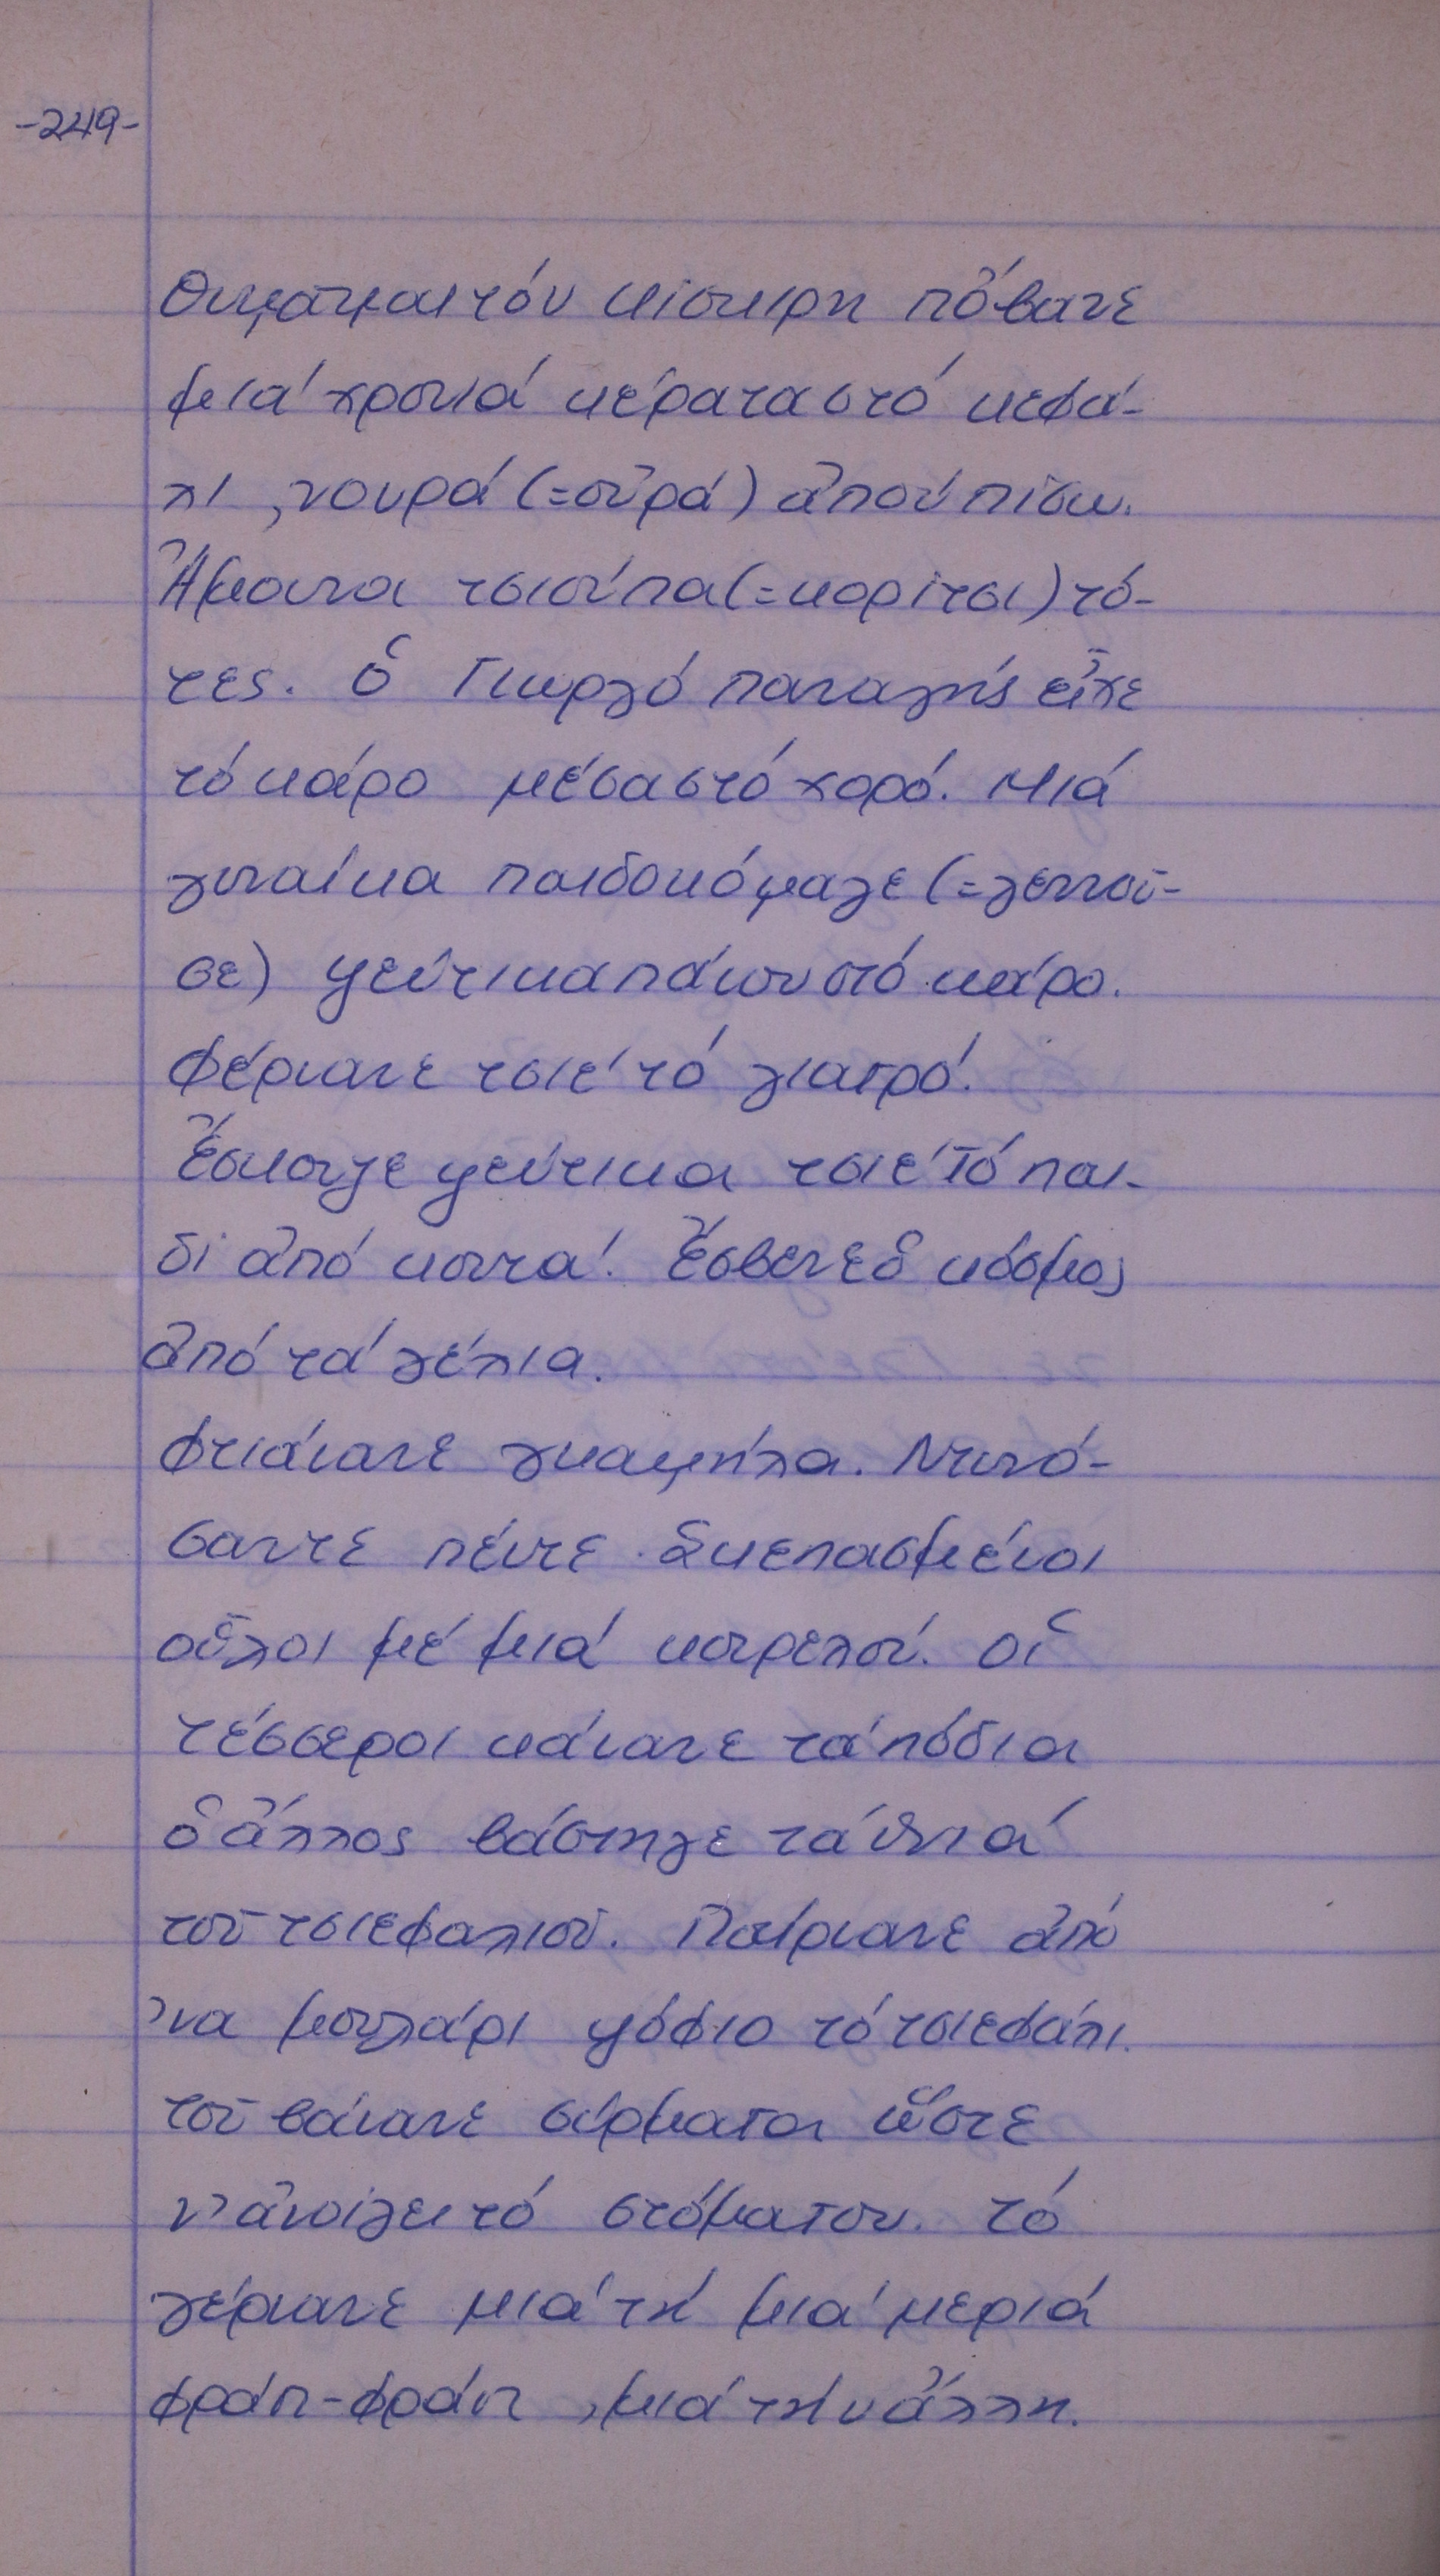 -249-
Θυμᾶμαι τόν κίσκιρη πὄβανε
μιά χρονιά κέρατα στό κεφά-
λι, νουρά (=οὐρά) ἀπού πίσω.
Ἤμουνα τσιούπα (=κορίτσι) τό-
τες. ὁ Γιωργό Παναγής εἶχε
τό κάρο μέσα στό χορό. Μιά
γυναίκα παιδοκόμαγε (=γεννοῦ-
σε) ψεύτικα πάνου στό κάρο.
Φέρνανε τσιέ τό γιατρό.
Ἔσκουζε ψεύτικα τσιέ τό παι-
δί ἀπό κοντά. Ἔσβενε ὁ κόσμος
ἀπό τά γέλια.
Φτιάνανε γκαμήλα. Ντυνό-
σαντε πέντε. Σκεπασμένοι
οὗλοι μέ μιά κουρελού. Οἱ
τέσσεροι κάνανε τά πόδια
ὁ ἄλλος βάσταγε τά ὀνιά
τοῦ τσιεφαλιοῦ. Παίρνανε ἀπό
'να μουλάρι ψόφιο τό τσιεφάλι.
τοῦ βάνανε σύρματα ὥστε
ν' ἀνοίγει τό στόμα του. τό
γέρνανε μιά τή μιά μεριά
φράπ-φράπ, μιά τήν ἄλλη.